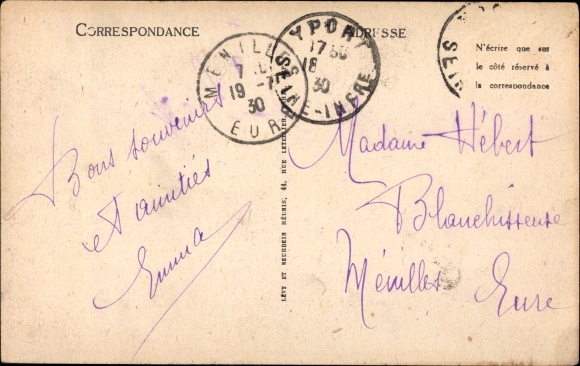 CORRESPONDANCE
ADRESSE
N'écrire que sur
le côté réservé à
la correspondance
MÉNILLES
19 -7
30
EURE
YPORT
17 30
18
30
SEINE-INFRE
SEIN
Bons souvenirs
et amitiés
Emma
LÉVY ET NEURDEIN RÉUNIS, 44, RUE LETELLIER,
Madame Hébert
Blanchisseuse
Ménilles
Eure